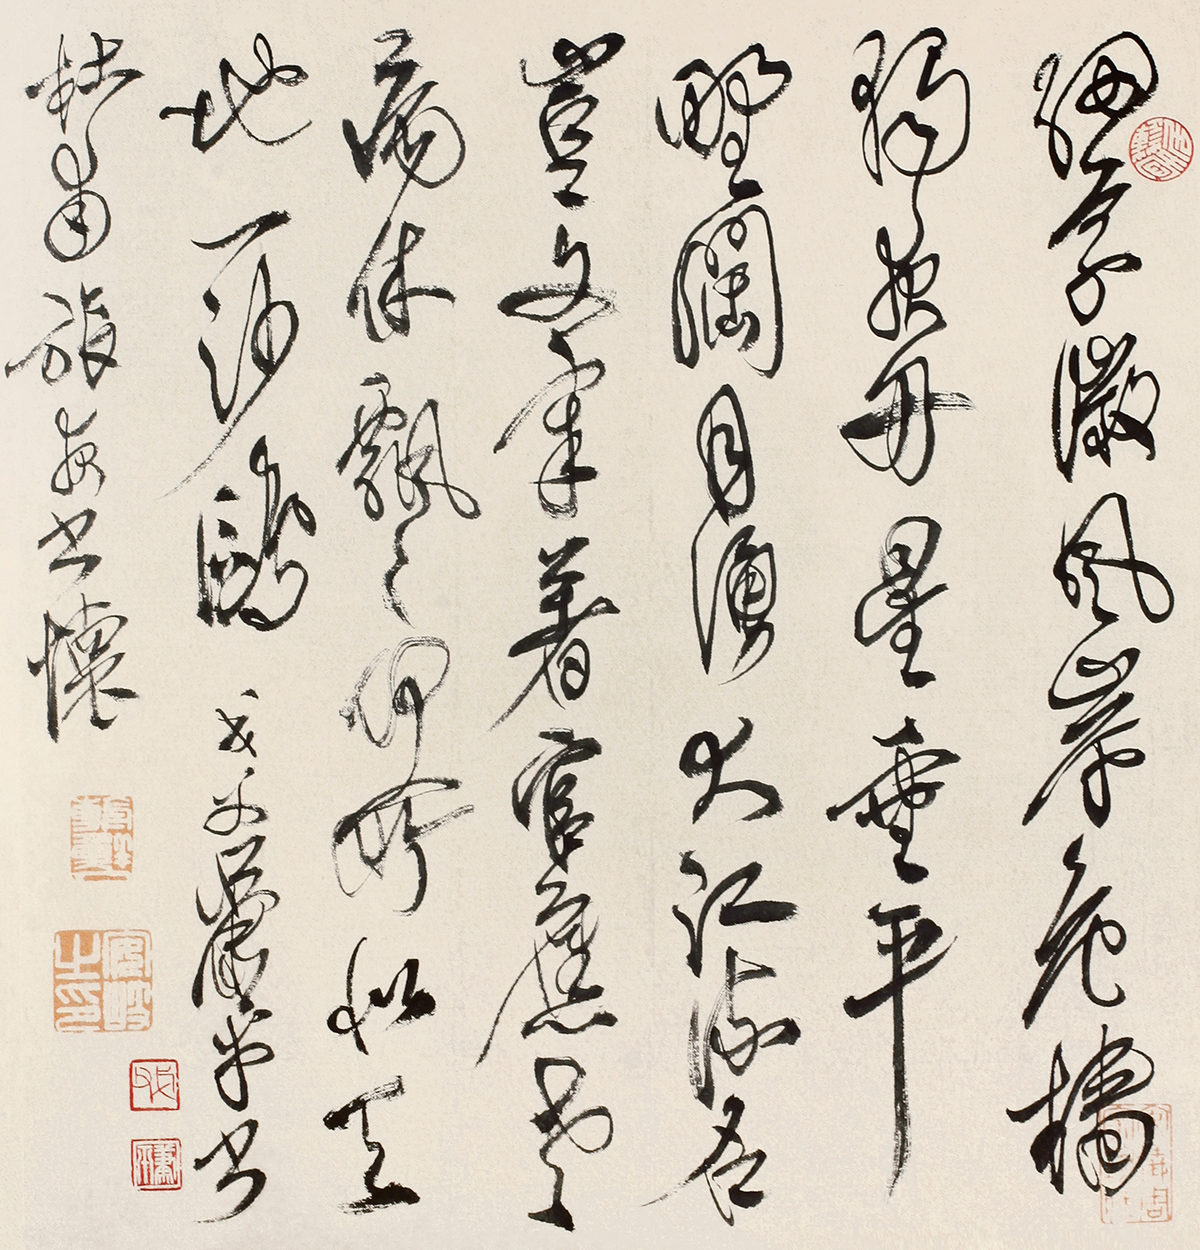 細草微風岸危檣
獨夜舟星垂平
野闊月湧大江流名
豈文章著官應老
病休飄々何所似天
地一沙鷗 戊子蕭平书
杜甫旅夜书懷
戊子
蕭平